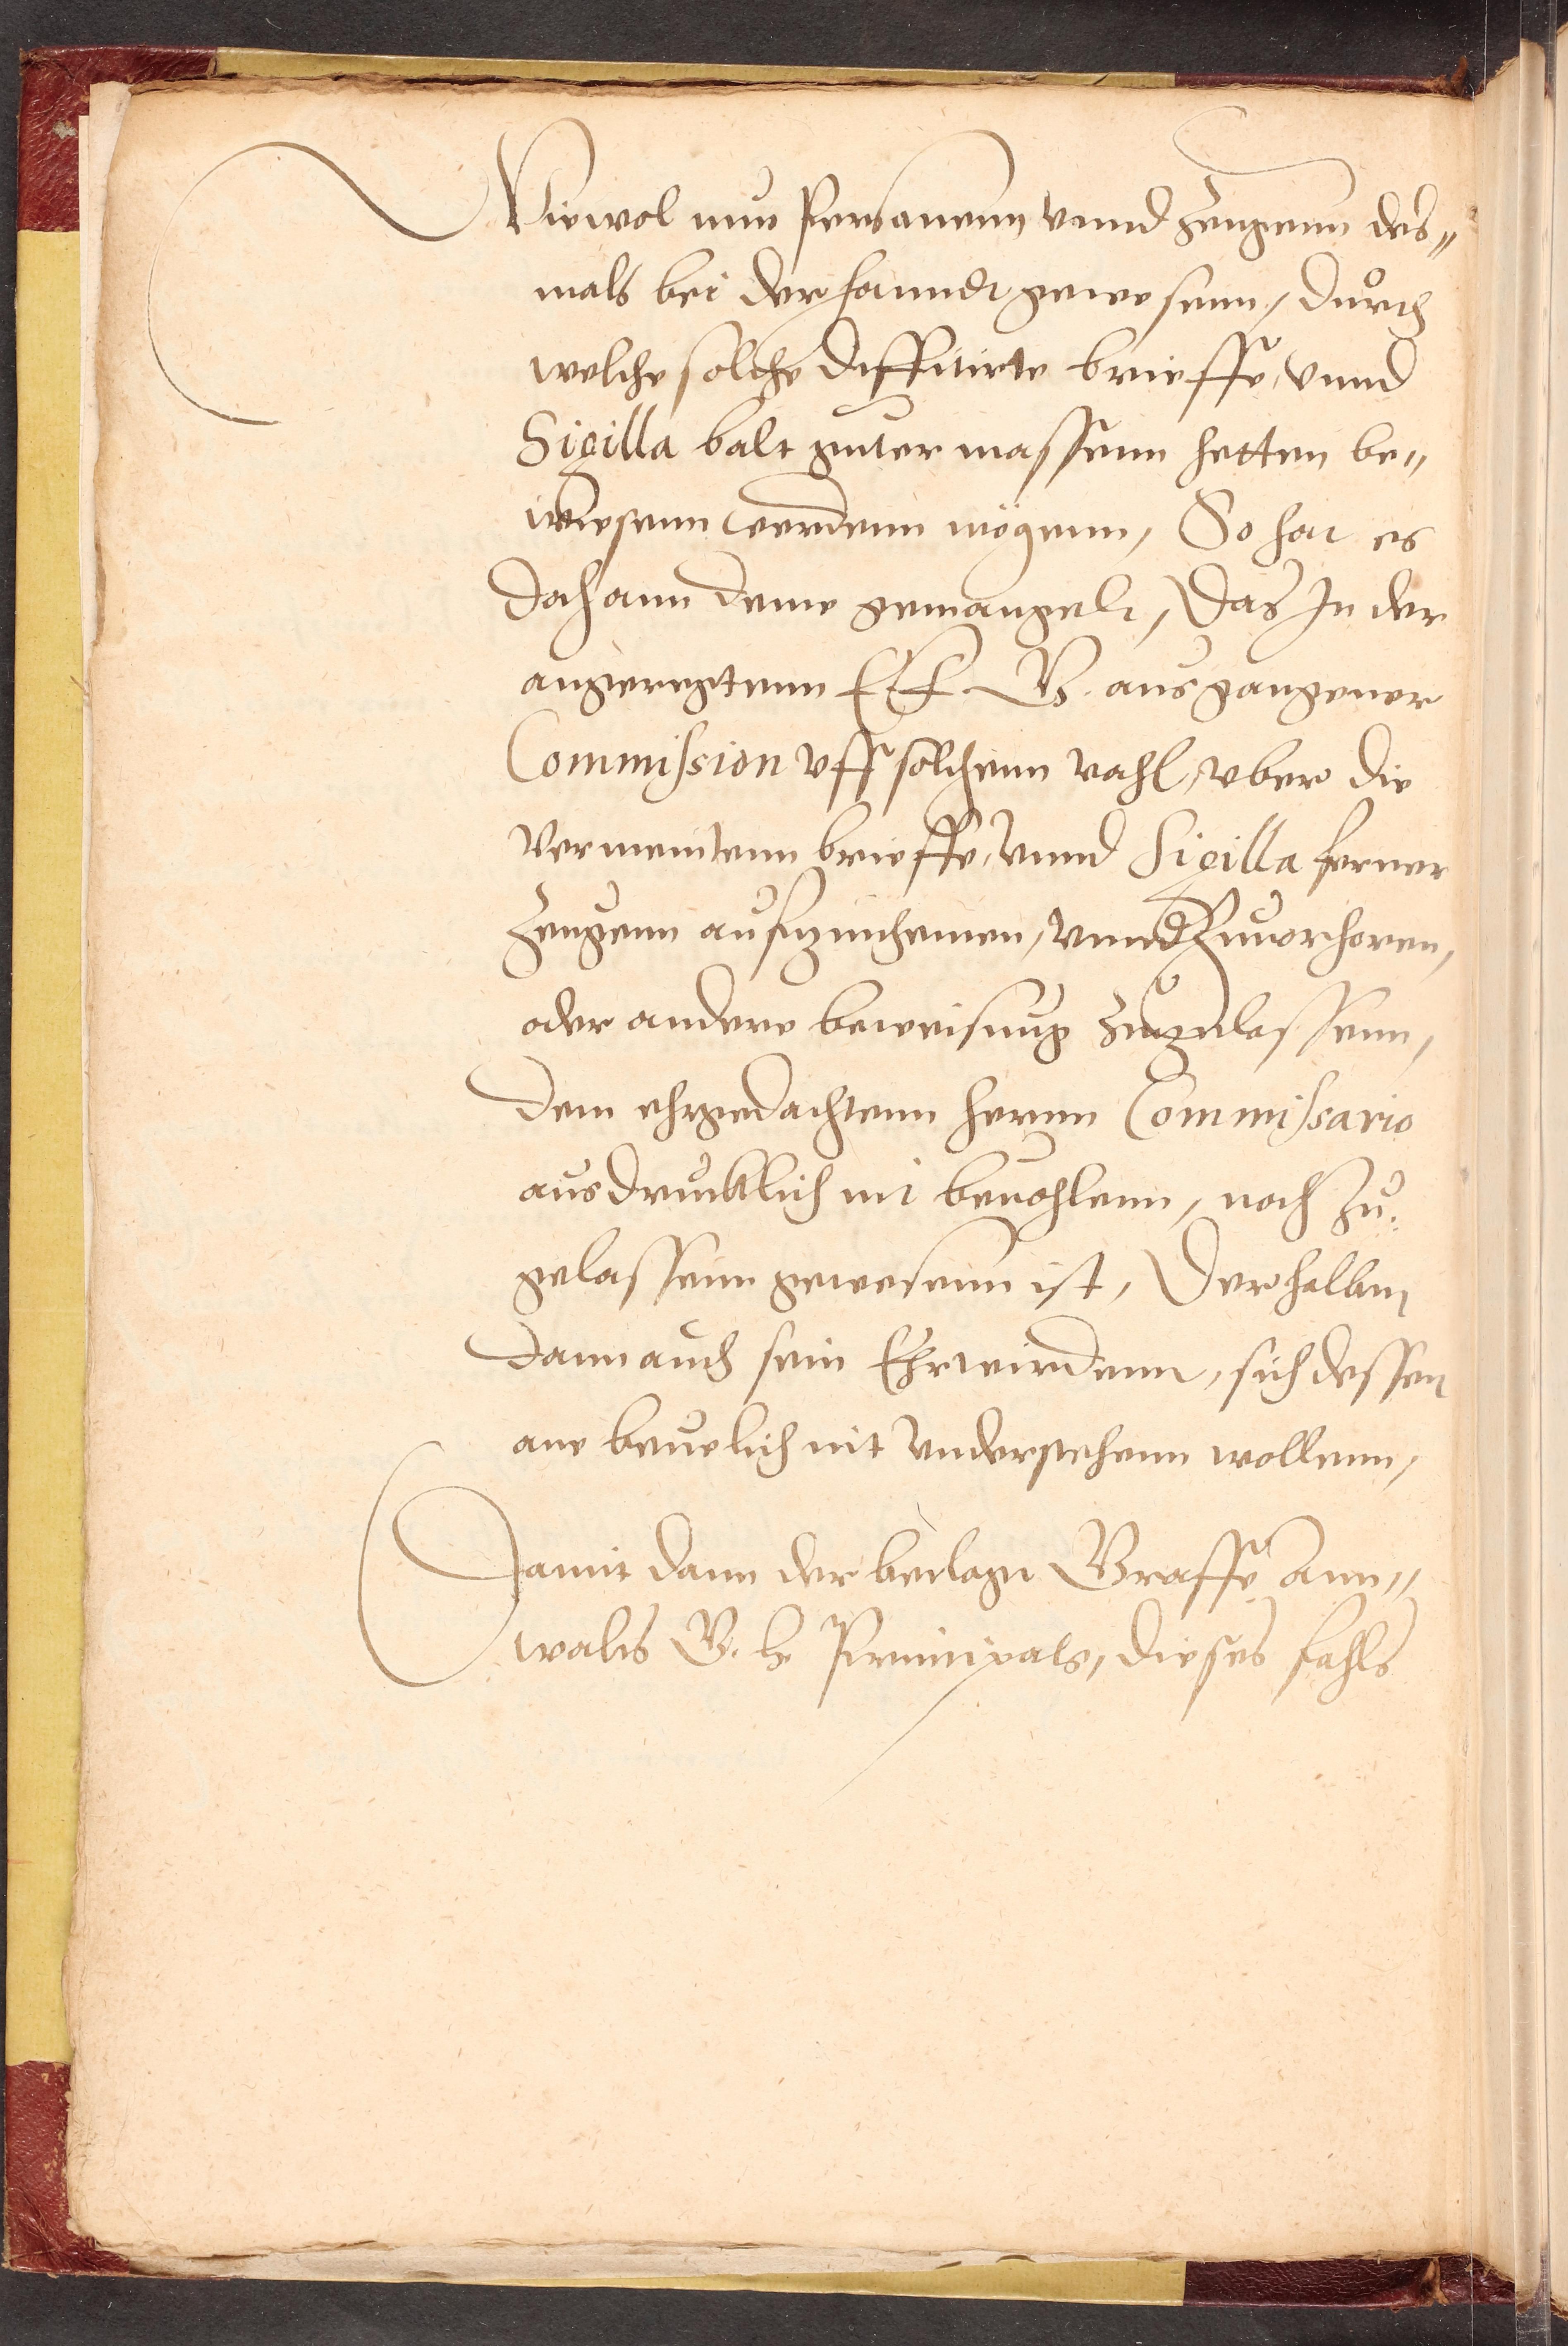 Wiewol nun Personenn vnnd Zeugenn des„
mals bei der hanndt gewesenn, durch
welche solche diffitirte brieffe, vnnd
Sigilla balt guter massenn hetten be„
wiesenn werdenn mögenn, So hat es
doch ann deme gemangelt, Das In der
angeregtenn E. K. G. ausgangener
Commission vff solchenn vahl, vber die
vermeintenn brieffe, vnnd Sigilla ferner
Zeugenn aufzunehemen, vnnd Zuuorhoren,
oder andere beweisung Zuzulassenn,
dem ehrgedachtenn herrnn Commissario
ausdrucklich nit beuohlenn, noch Zu„
gelassenn gewesenn ist, Derhalben
dann auch sein Ehrwirdenn, sich dessen
ane beuelich nit Vnderstehenn wollenn,
Damit dann der beclagte Graffe Ann„
walts G. h. Principals, dieses fahls